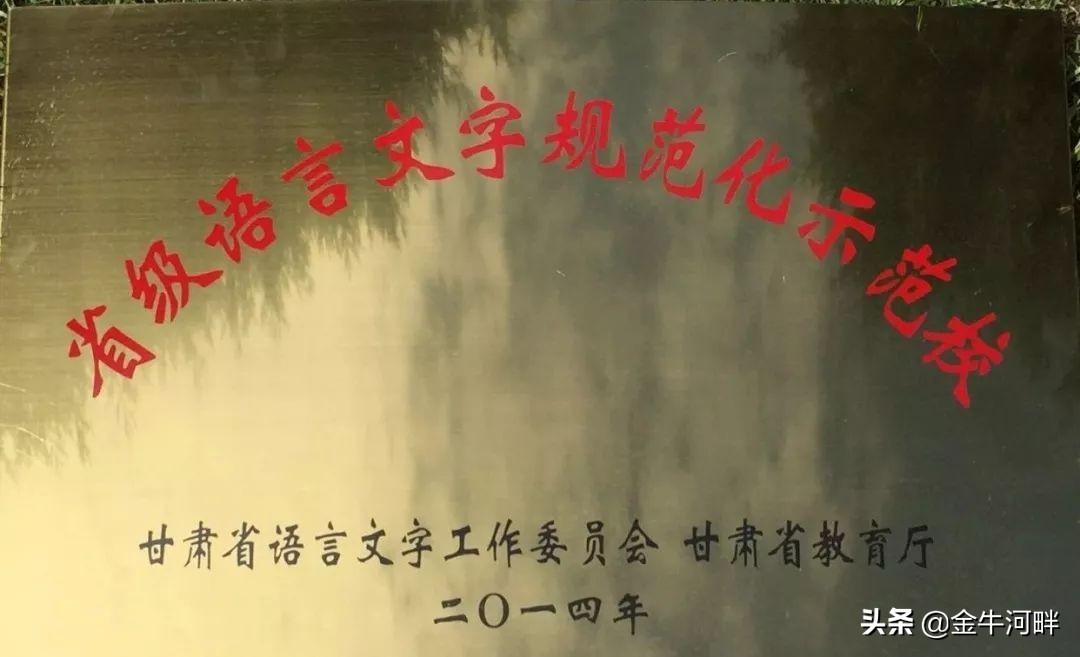 省级语言文字规范化示范校
甘肃省语言文字工作委员会 甘肃省教育厅
二〇一四年
头条 @金牛河畔